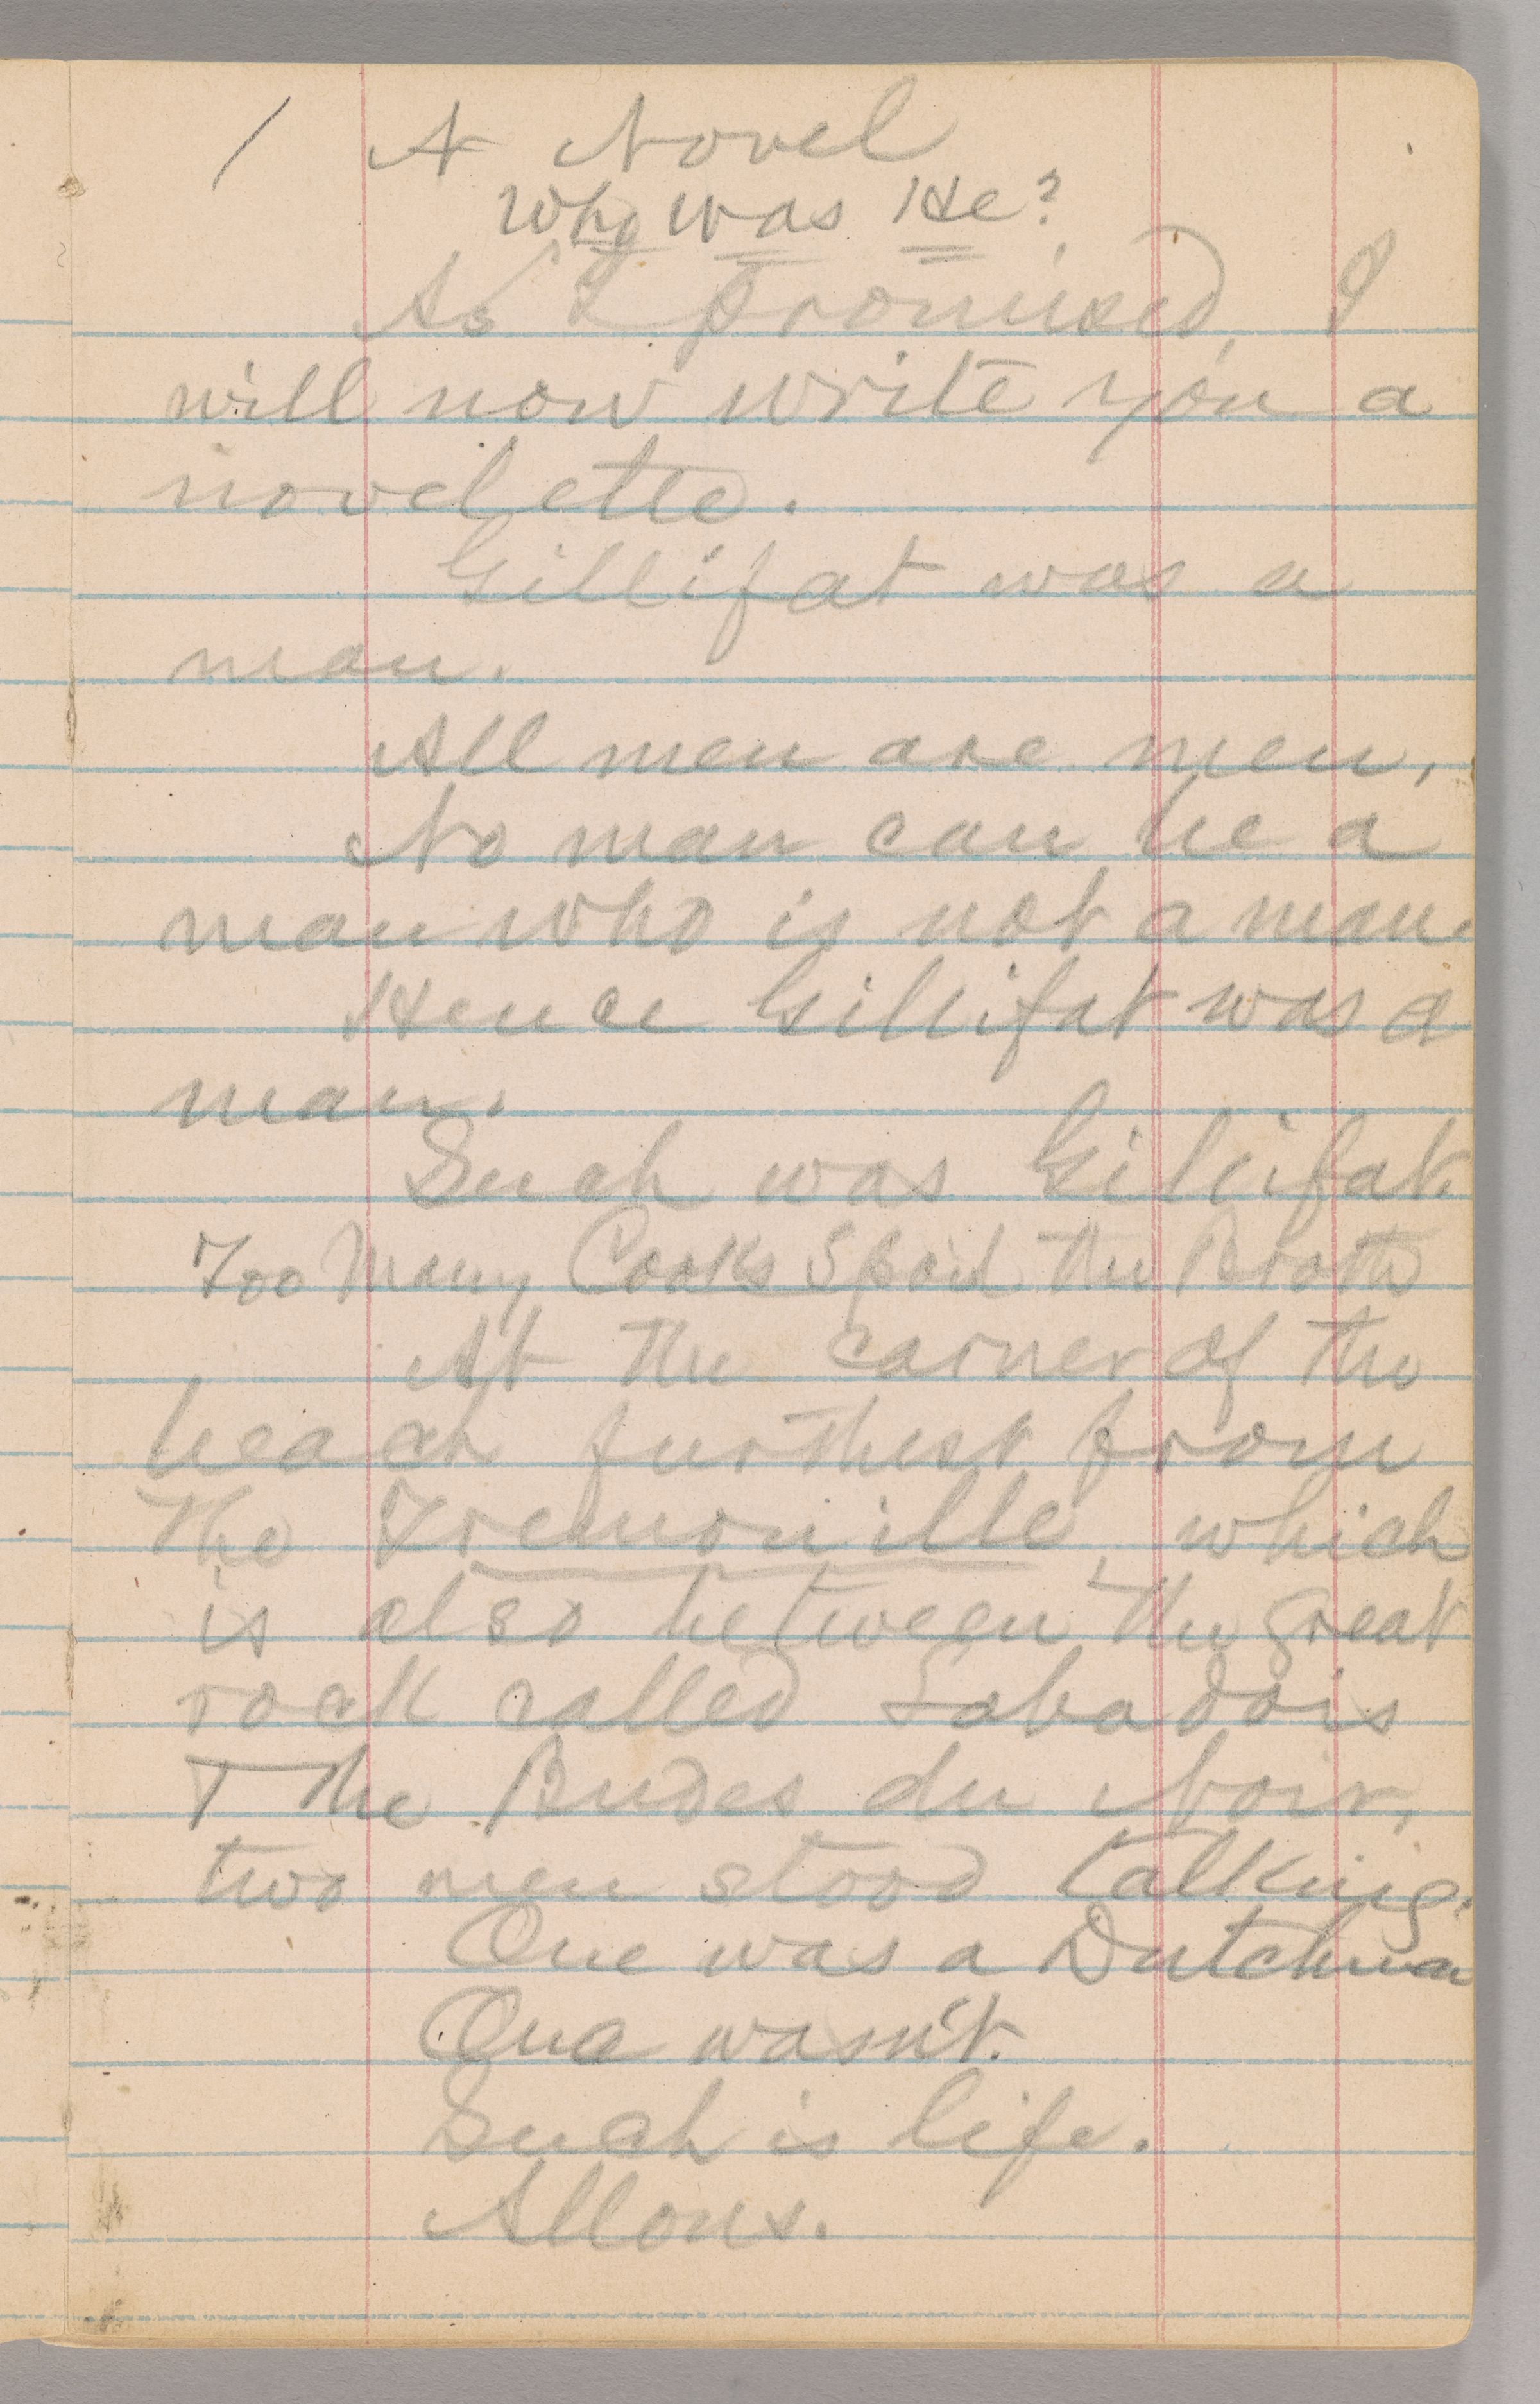 / A Novel
Who was He?
As I promised, I
will now write you a
novelette.
Gillifat was a
man.
All men are men,
No man can be a
man who is not a man.
Hence Gillifat was a
man.
Such was Gillifat.
Too Many Cooks Spoil the Broth
At the corner of the
beach furthest from
the Tremouille, which
is also between the great
rock called Labadois
The Budes du Noir,
two men stood talking.
One was a Dutchman
One wasn't.
Such is life.
Allons.